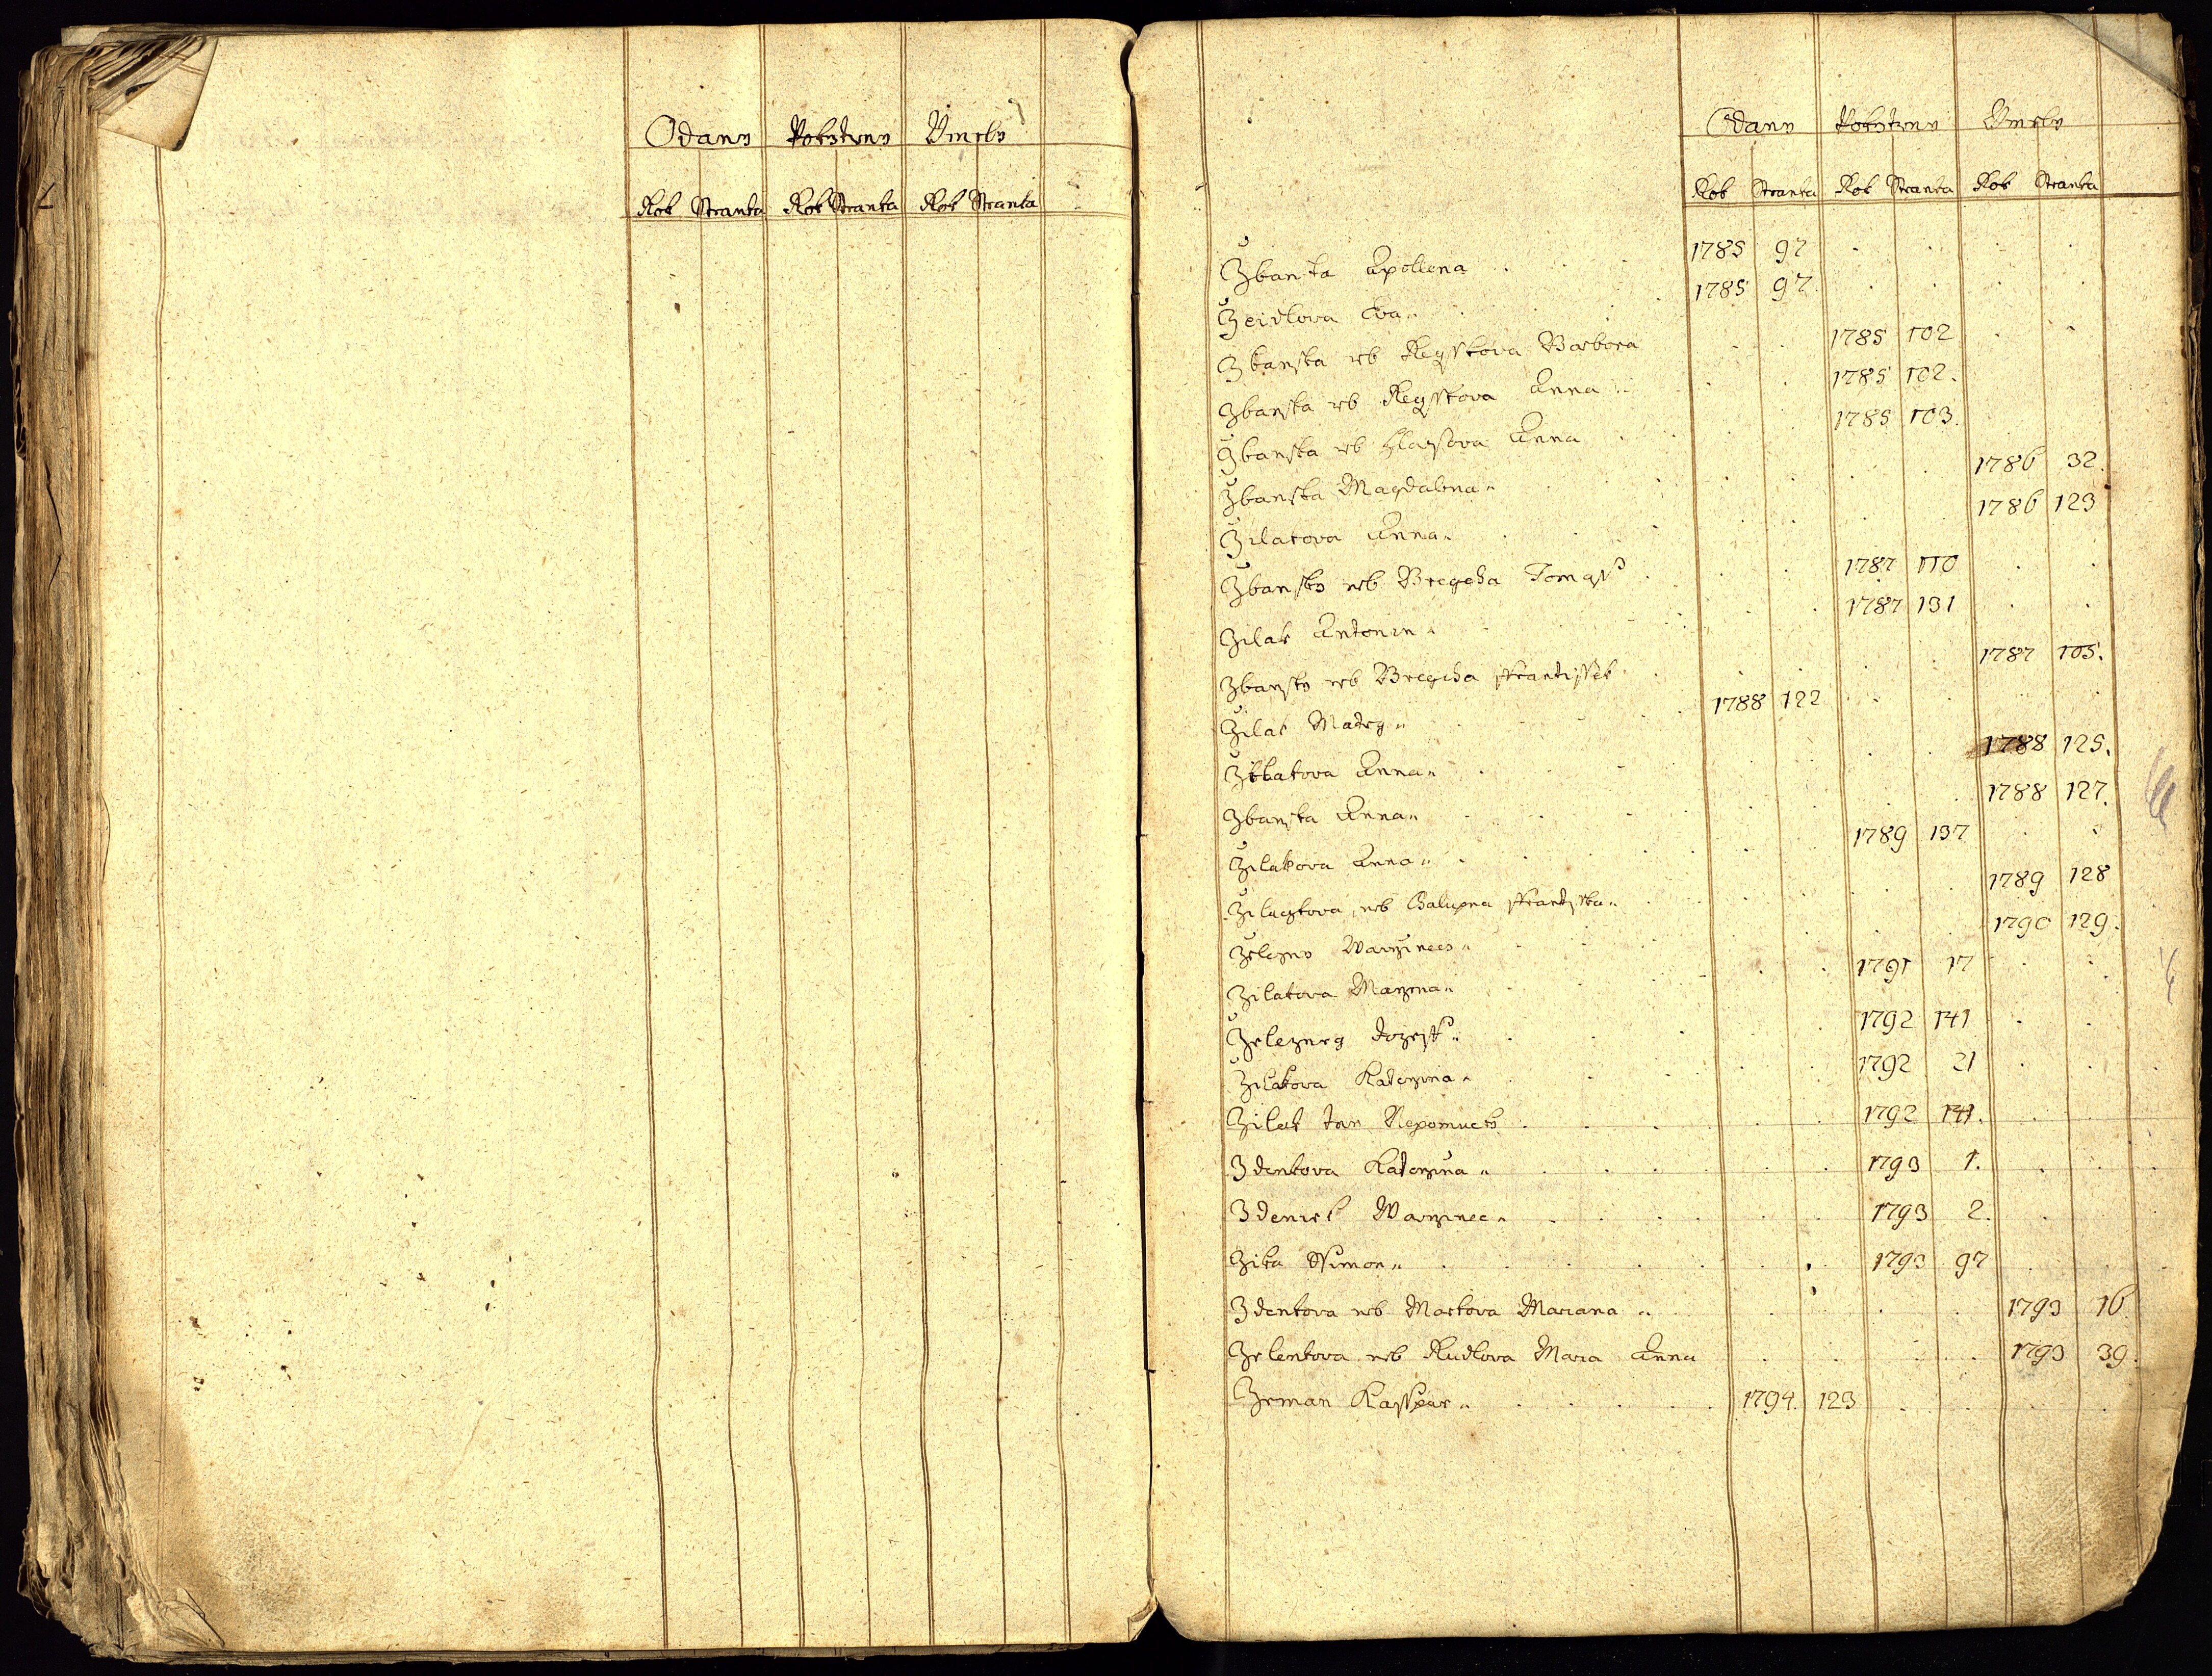 Odany Pokrzteny Umrely
Rok Stranka Rok Stranka Rok Stranka
Odany Pokrzteny Umrely
Rok Stranka Rok Stranka Rok Stranka
Zbanska Apollena 1785 97
Zeidlova Eva 1785 97
Zbanska neb Regsskova Barbora 1785 102
Zbanska neb Regsskova Anna 1785 102.
Zbanska neb Anna 1785 103.
Zbanska Magdalena 1786 32.
Zilakova Anna 1786 123
Zbansky neb Bregcha Tomass 1787 110
Zilak Antonin 1787 131
Zbansky neb Bregcha Frantissek 1787 105.
Zilak Mateg 1788 122
Anna 1788 125.
Zbanska Anna 1788 127.
Zilakova Anna 1789 137
neb Frantisska 1789 128
Zelezny Warzinecz 1790 129.
Zilakova Marzena 1791 17
Zelezneg Jozeff 1792 141
Zilakova Katerzina 1792 21
Zilak Jan Nepomuck 1792 141.
Zdenkova Katerzina 1793 1.
Zdeniek Warzinec 1793 2.
Zika Ssimon 1793 97
Zdenkova neb Markova Mariana 1793 16
Zelenkova neb Kudlova Maria Anna 1793 39.
Zeman Kasspar 1794. 123